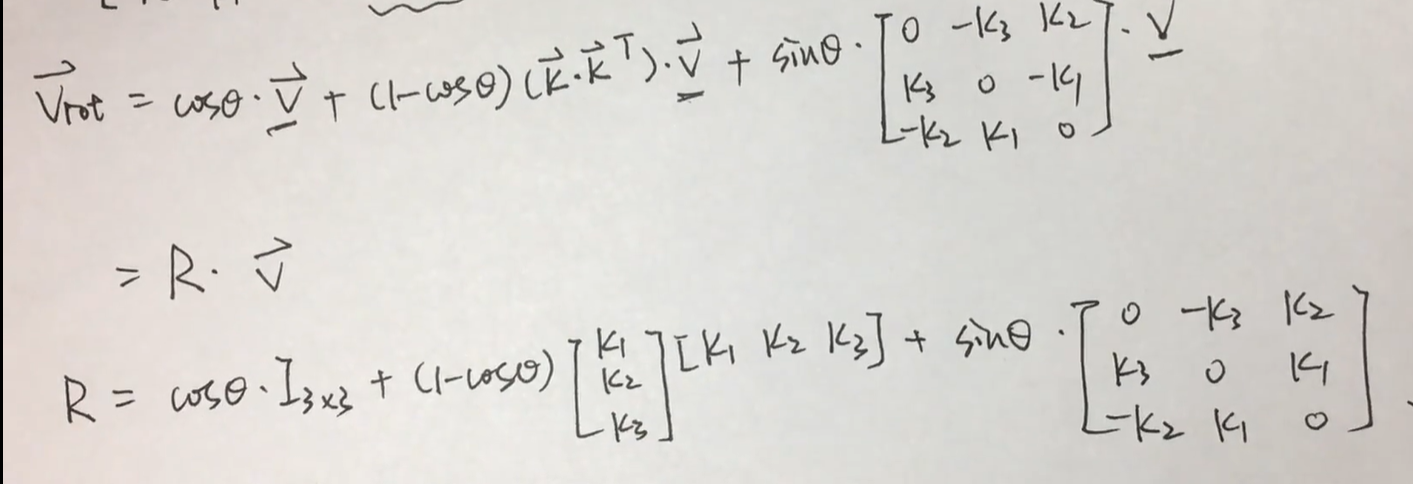 V⃗rot = cosθ · V⃗ + (1-cosθ)(K⃗·K⃗ᵀ)·V⃗ + sinθ · [0 -K₃ K₂; K₃ 0 -K₁; -K₂ K₁ 0] · V
= R · V⃗
R = cosθ · I₃ₓ₃ + (1-cosθ) [K₁; K₂; K₃] [K₁ K₂ K₃] + sinθ · [0 -K₃ K₂; K₃ 0 K₁; -K₂ K₁ 0]